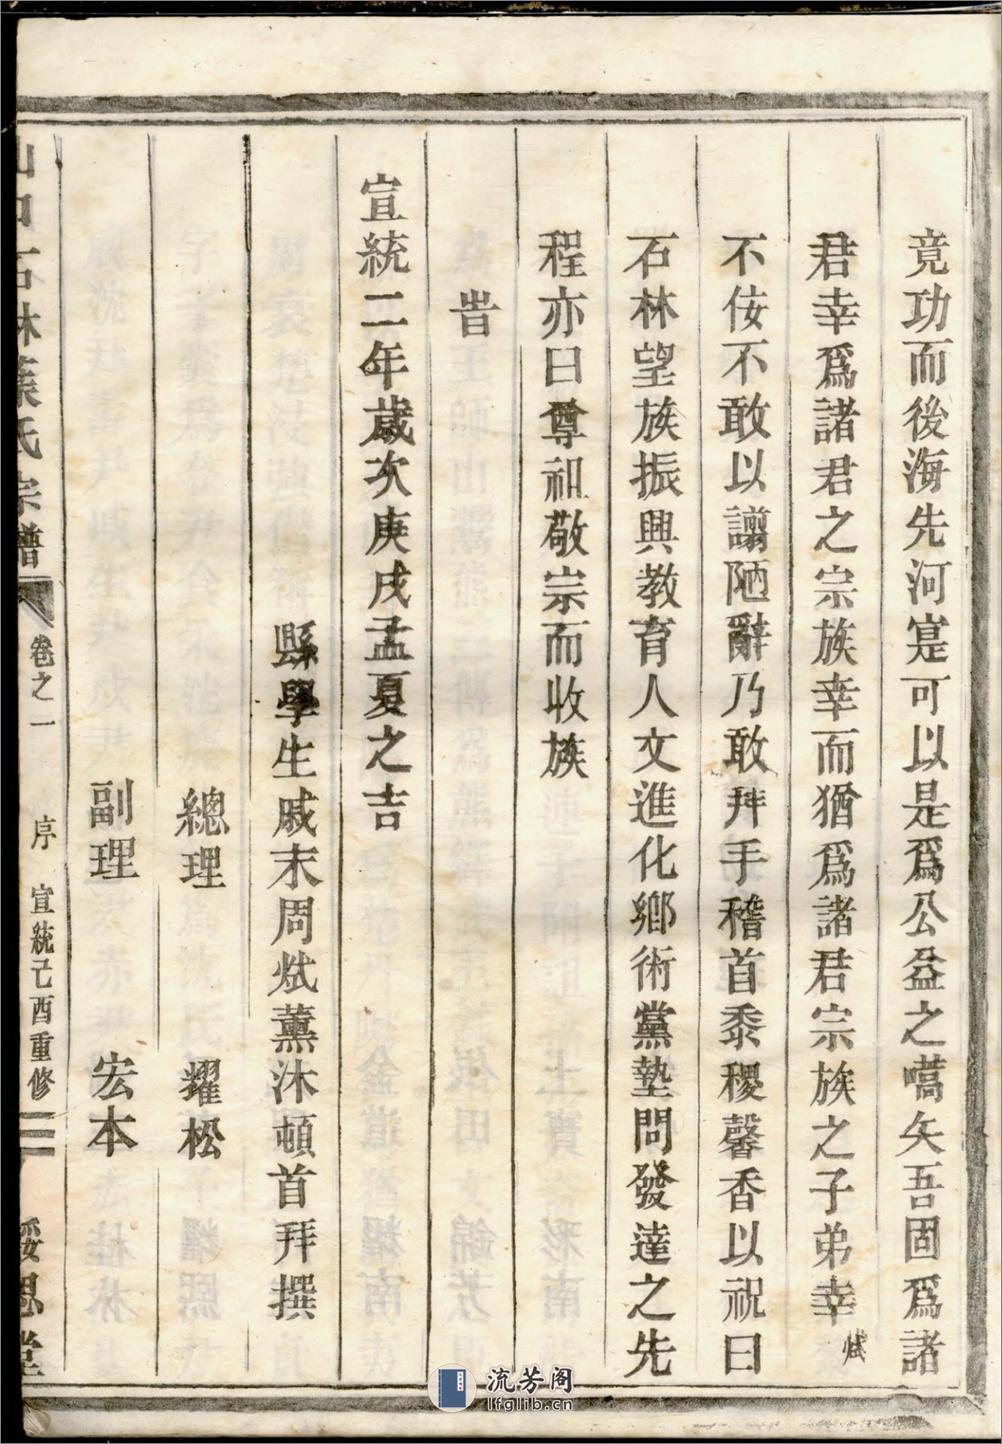 竟功而後海先河寔可以是爲公益之嚆矢吾固爲諸
君幸爲諸君之宗族幸而猶爲諸君宗族之子弟幸
斌
不佞不敢以譾陋辭乃敢拜手稽首黍稷馨香以祝曰
石林望族振興教育人文進化鄉術黨塾問發達之先
程亦曰尊祖敬宗而收族
旹
宣統二年歲次庚戌孟夏之吉
縣學生戚末周斌薰沐頓首拜撰
總理 耀松
副理 宏本
山口石林葉氏宗譜 卷之一 序 宣統己酉重修 綏思堂
流芳阁
lfglib.cn